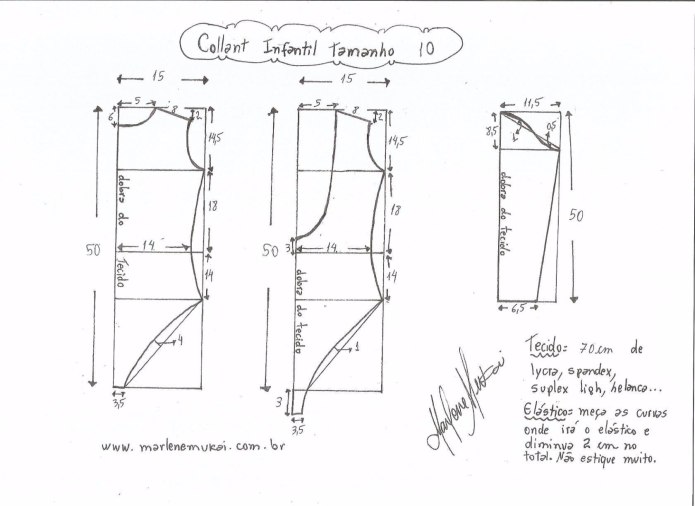 Collant Infantil Tamanho 10
15
5
8
2
6
14,5
dobra do
Tecido
18
50
14
14
4
3,5
15
5
8
2
14,5
18
50
3
14
14
dobra do tecido
1
3
3,5
11,5
8,5
1
0,5
dobra do tecido
50
6,5
Tecido: 70cm de
lycra, spandex,
suplex ligh, helanca...
Elástico: meça as curvas
onde irá o elástico e
diminua 2 cm no
total. Não estique muito.
www.marlenemukai.com.br